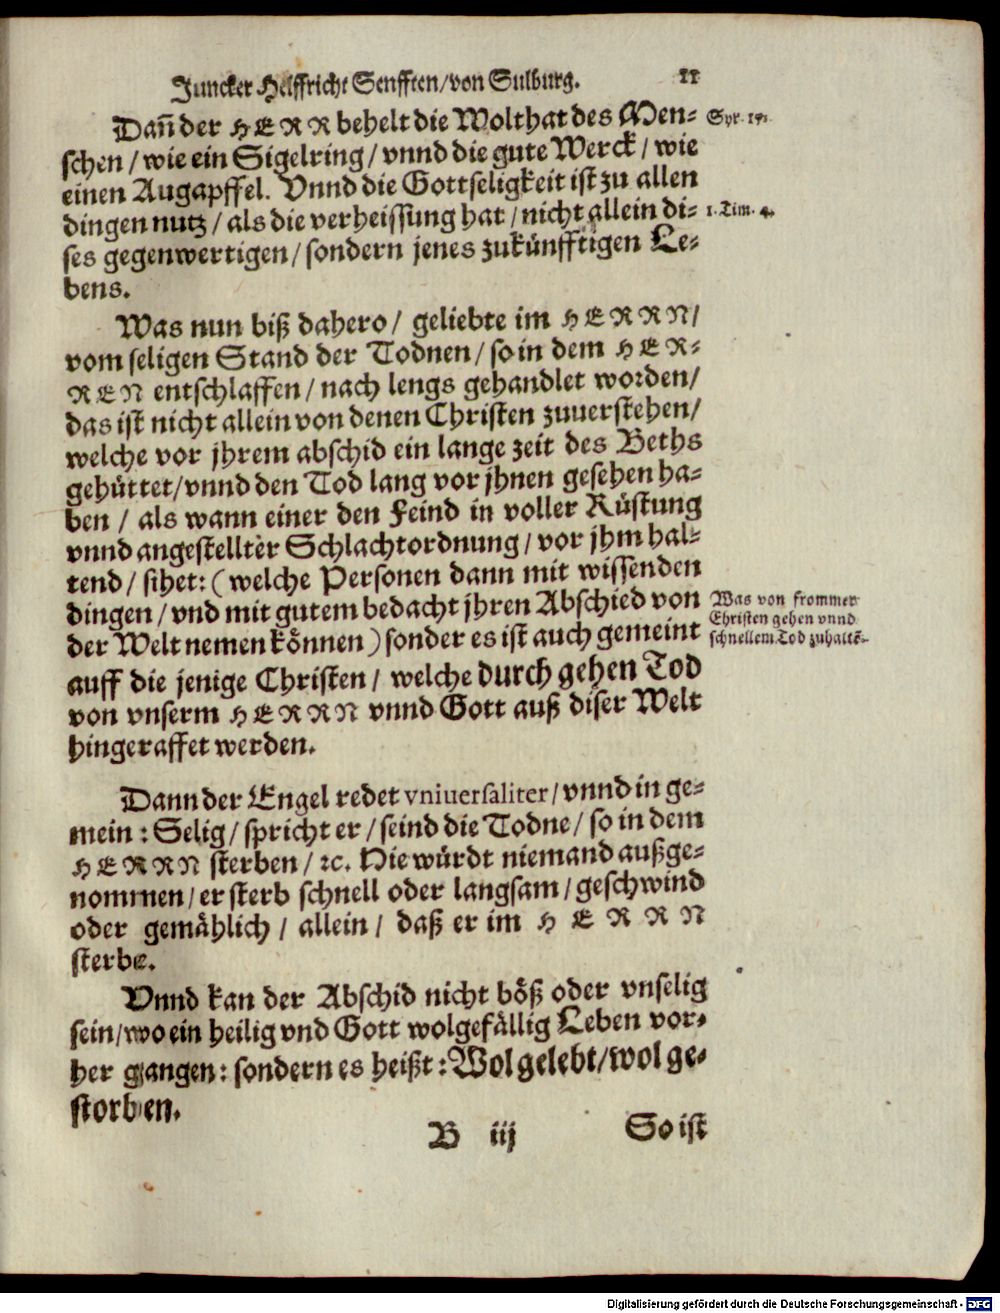 Juncker Helffricht Senfften/von Sulburg. 11
Dañ der HERR behelt die Wolthat des Men-
schen / wie ein Sigelring / vnnd die gute Werck / wie
einen Augapffel. Vnnd die Gottseligkeit ist zu allen
dingen nutz / als die verheissung hat / nicht allein di-
ses gegenwertigen / sondern jenes zukünfftigen Le-
bens.
Syr. 17.
1. Tim. 4.
Was nun biß dahero / geliebte im HERRN/
vom seligen Stand der Todnen / so in dem HER-
REN entschlaffen / nach lengs gehandlet worden/
das ist nicht allein von denen Christen zuuerstehen/
welche vor jhrem abschid ein lange zeit des Beths
gehüttet/vnnd den Tod lang vor jhnen gesehen ha-
ben / als wann einer den Feind in voller Rüstung
vnnd angestellter Schlachtordnung / vor jhm hal-
tend / sihet: (welche Personen dann mit wissenden
dingen / vnd mit gutem bedacht jhren Abschied von
der Welt nemen können) sonder es ist auch gemeint
auff die jenige Christen / welche durch gehen Tod
von vnserm HERRN vnnd Gott auß diser Welt
hingeraffet werden.
Was von frommer
Christen gehen vnnd
schnellem Tod zuhaltẽ.
Dann der Engel redet vniuersaliter / vnnd in ge-
mein : Selig / spricht er / seind die Todne / so in dem
HERRN sterben / ꝛc. Hie würdt niemand außge-
nommen / er sterb schnell oder langsam / geschwind
oder gemählich / allein / daß er im HERRN
sterbe.
Vnnd kan der Abschid nicht böß oder vnselig
sein/wo ein heilig vnd Gott wolgefällig Leben vor-
her gangen : sondern es heißt : Wol gelebt/wol ge-
storben.
B iij So ist
Digitalisierung gefördert durch die Deutsche Forschungsgemeinschaft - DFG